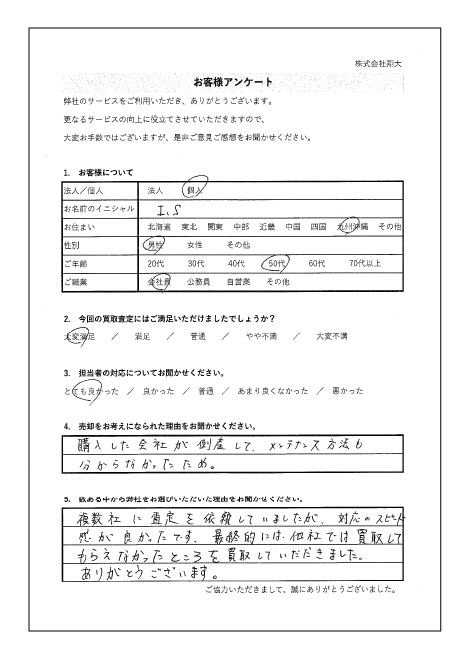 株式会社翔大
お客様アンケート
弊社のサービスをご利用いただき、ありがとうございます。
更なるサービスの向上に役立てさせていただきますので、
大変お手数ではございますが、是非ご意見ご感想をお聞かせください。
1. お客様について
法人／個人 法人 個人
お名前のイニシャル I.S
お住まい 北海道 東北 関東 中部 近畿 中国 四国 九州沖縄 その他
性別 男性 女性 その他
ご年齢 20代 30代 40代 50代 60代 70代以上
ご職業 会社員 公務員 自営業 その他
2. 今回の買取査定にはご満足いただけましたでしょうか？
大変満足 ／ 満足 ／ 普通 ／ やや不満 ／ 大変不満
3. 担当者の対応についてお聞かせください。
とても良かった ／ 良かった ／ 普通 ／ あまり良くなかった ／ 悪かった
4. 売却をお考えになられた理由をお聞かせください。
購入した会社が倒産して、メンテナンス方法も
分からなかったため。
5. 数ある中から弊社をお選びいただいた理由をお聞かせください。
複数社に査定を依頼していましたが、対応のスピード
感が良かったです。最終的には他社では買取して
もらえなかったところを買取していただきました。
ありがとうございます。
ご協力いただきまして、誠にありがとうございました。